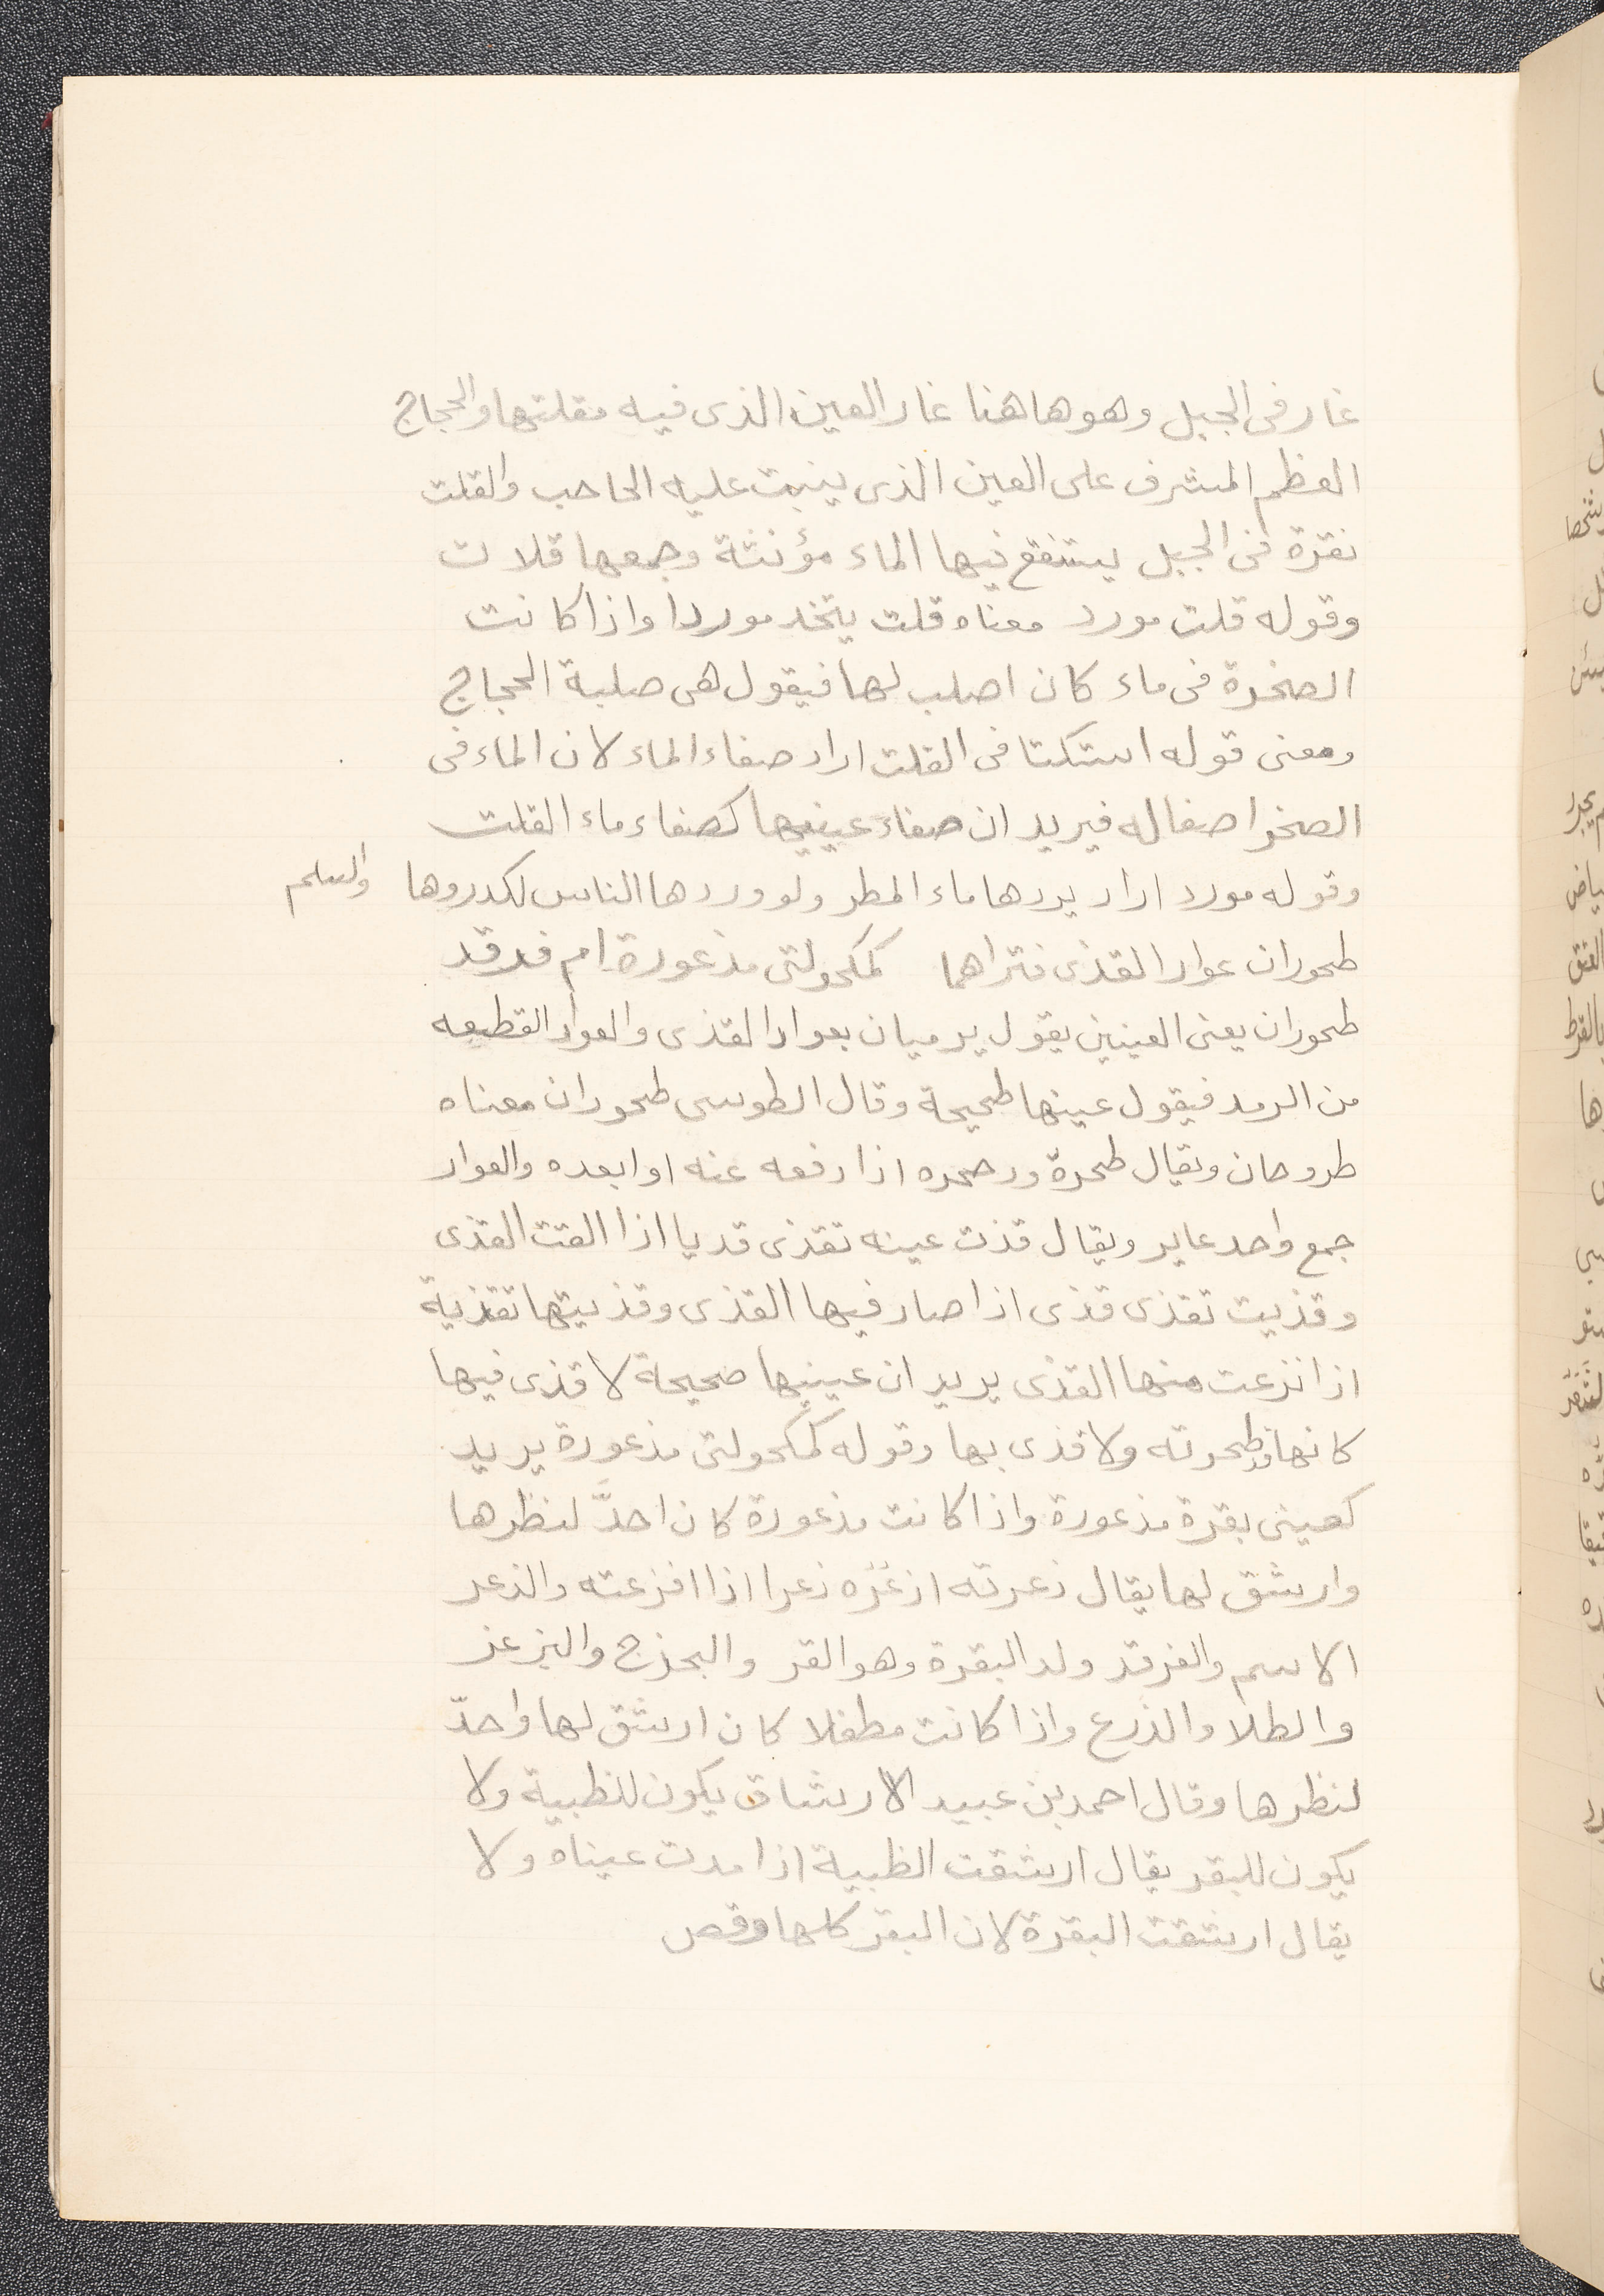 غار فى الجبل وهو هاهنا غار العين الذى فيه مقلتها والحجاج
العظم المشرف على العين الذى ينبت عليه الحاجب والقلت
نقرة فى الجبل يستنقع فيها الماء مؤنثة وجمعها قلات
وقوله قلت مورد معناه قلت يتخد موردا واذا كانت
الصخرة فى ماء كان اصلب لها فيقول هى صلبة الحجاج
ومعنى قوله استكتا فى القلت اراد صفاء الماء لان الماء فى
الصخر اصفا له فيريد ان صفاء عينيها كصفاء ماء القلت
وقوله مورد اراد يردها ماء المطر ولو وردها الناس لكدروها والسلم
طحوران عوار القذى فتراهما كمكحولتى مذعورة ام فرقد
طحوران يعنى العينين يقول يرميان بعوار القذى والعوار القطعه
من الرمد فيقول عينها طحيحة وقال الطوسى طحوران معناه
طروحان ويقال طحرة ودحره اذا دفعه عنه او ابعده والعوار
جمع واحد عاير ويقال قذت عينه تقذى قديا اذا القت القذى
وقذيت تقذى قذى اذا صار فيها القذى وقذيتها تقذية
اذا نزعت منها القذى يريد ان عينيها صحيحة لا قذى فيها
كانها قد طحرته ولا قذى بها وقوله كمكحولتى مذعورة يريد
كعينى بقرة مذعورة واذا كانت مذعورة كان احدَّ لنظرها
وارشق لها يقال ذعرته اذعره ذعرا اذا افزعته والذعر
الاسم والفرقد ولد البقرة وهو الفز والبحزج والبرغز
والطلا والذرع واذا كانت مطفلا كان ارشق لها واحدّ
لنظرها وقال احمد بن عبيد الارشاق يكون للظبية ولا
يكون للبقر يقال ارشقت الظبية اذا مدت عيناه ولا
يقال ارشقت البقرة لان البقر كلها وقص